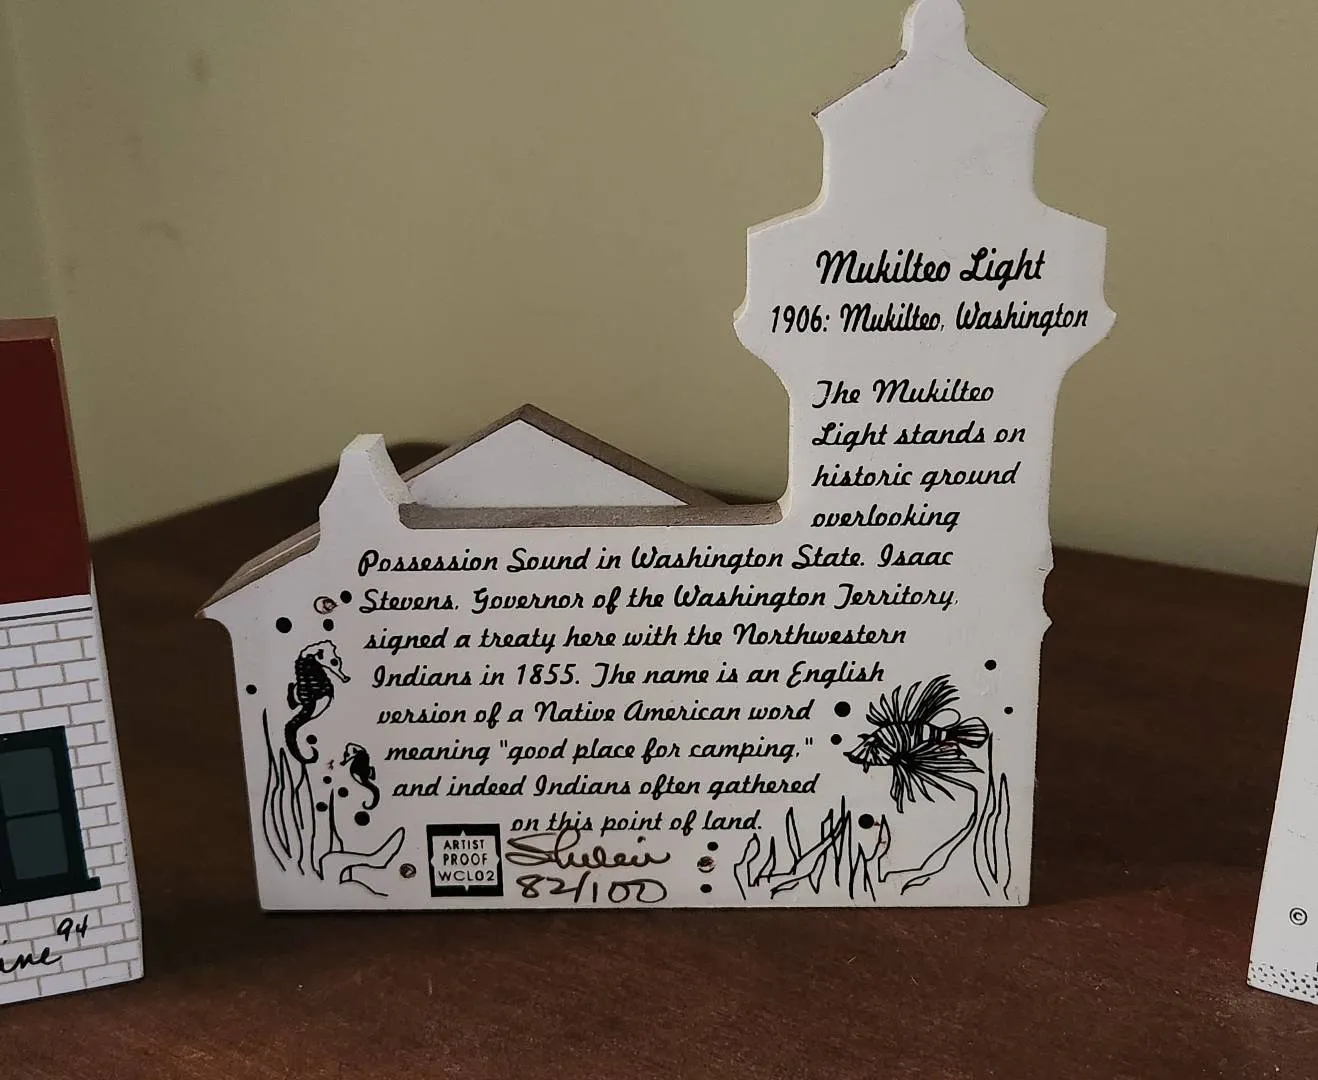 Mukilteo Light
1906: Mukilteo, Washington
The Mukilteo
Light stands on
historic ground
overlooking
Possession Sound in Washington State. Isaac
Stevens, Governor of the Washington Territory,
signed a treaty here with the Northwestern
Indians in 1855. The name is an English
version of a Native American word
meaning "good place for camping,"
and indeed Indians often gathered
on this point of land.
ARTIST
PROOF
WCL02
82/100
94
©